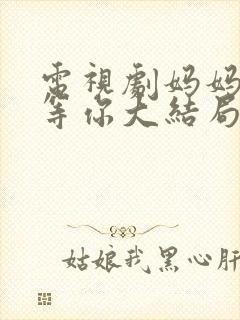 電視劇妈妈
等你大結局
姑娘我黑心肝